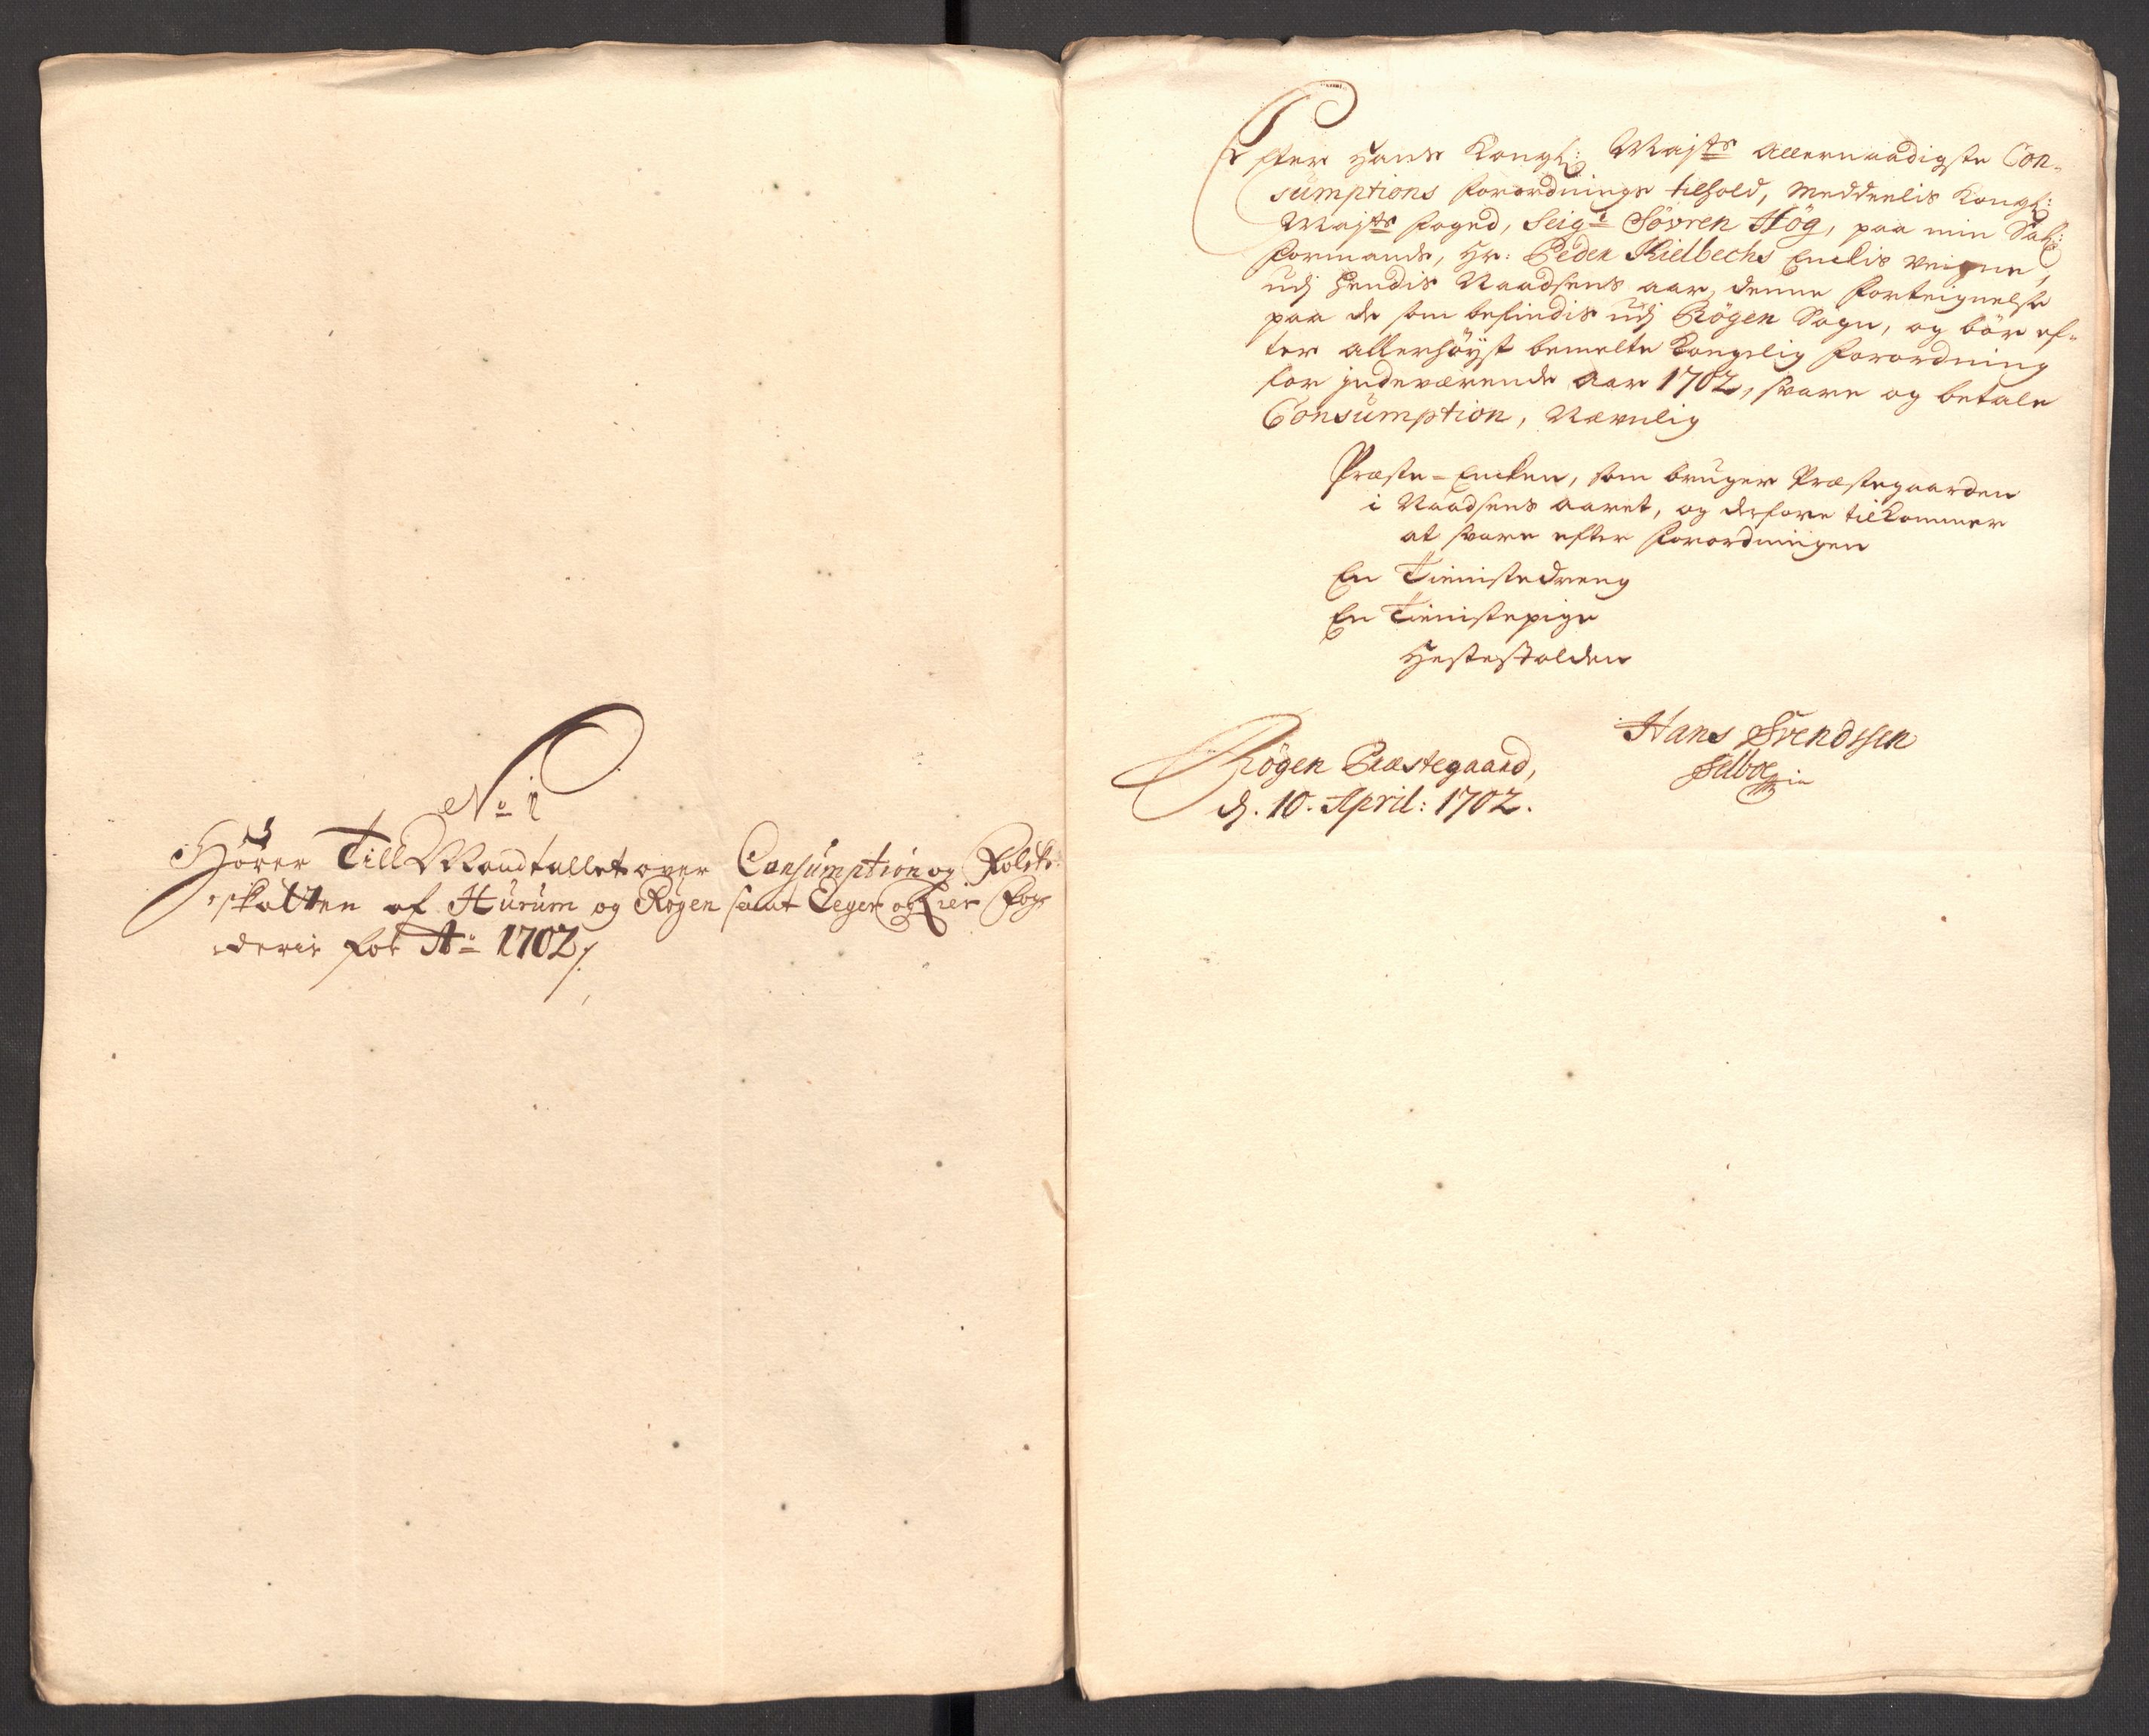 No 1
Hörer Till Mandtallet over Consumption og Folcke
skatten af Hurum og Rögen samt Eeger og Lier Fog
derie for Ao 1702 /.
Efter Hans Kongl: Majts Allernaadigste Con-
sumptions Forordnings tilhold, meddeelis Kongl:
Majts Foged, Seigr Sövren Hög, paa min Sal:
Formands, Hr: Peder Kielbechs Enckis Veigne,
udj hendis Naadsens aar, denne Forteignelse
paa de som befindis udj Rögen Sogn, og bör ef-
ter allerhöyst bemelte Kongelig Forordning
for indeværende Aar 1702, svare og betale
Consumption, Nævnlig
Præste-Encken, som bruger Præstegaarden
i Naadsens aaret, og derfore tilkommer
at svare efter Forordningen
En Tienistedreng
En Tienistepige
Hesteskolden
Hans Svendssen
Selboe
Rögen Præstegaard,
d. 10. April: 1702.